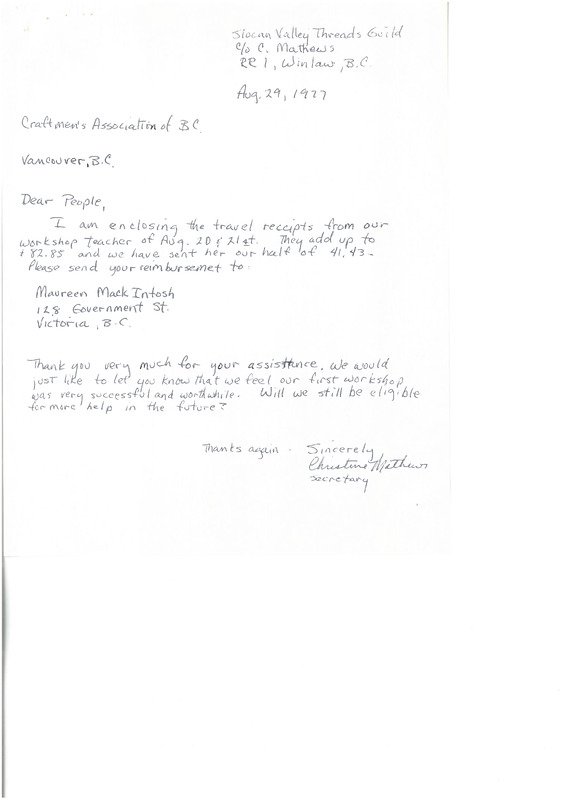 Slocan Valley Threads Guild
c/o C. Mathews
RR 1, Winlaw, B.C.
Aug. 29, 1977
Craftmen's Association of B.C.
Vancouver, B.C.
Dear People,
I am enclosing the travel receipts from our
workshop teacher of Aug. 20 & 21st. They add up to
$82.85 and we have sent her our half of 41,43.
Please send your reimbursemet to:
Maureen MackIntosh
128 Government St.
Victoria, B.C.
Thank you very much for your assisttance. We would
just like to let you know that we feel our first workshop
was very successful and worthwhile. Will we still be eligible
for more help in the future?
Thanks again. Sincerely
Christine Mathews
secretary